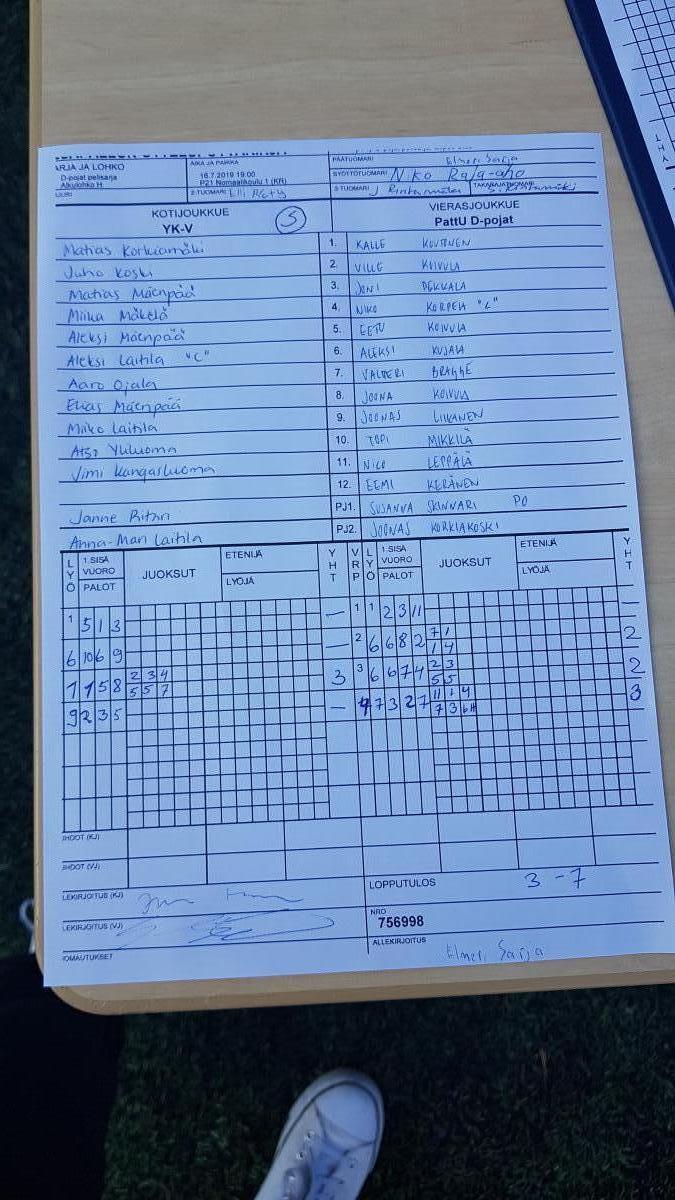 ARJA JA LOHKO
D-pojat pelisarja
Alkulohko H
AIKA JA PAIKKA
16.7.2019 19:00
P21 Normaalikoulu 1 (KR)
2-TUOMARI
PÄÄTUOMARI Elmeri Sarja
SYÖTTÖTUOMARI Niko Raja-aho
3-TUOMARI J Rintamäki TAKARAJATUOMARI
KOTIJOUKKUE
YK-V 5
VIERASJOUKKUE
PattU D-pojat
Matias Korkiamäki 1. KALLE
Juho Koski 2. VILLE KOIVULA
Matias Mäenpää 3. JONI PEKKALA
Miika Mäkelä 4. NIKO KORPELA "C"
Aleksi Mäenpää 5. EETU KOIVULA
Aleksi Laitila "C" 6. ALEKSI KUJALA
Aaro Ojala 7. VALTTERI BRAGGE
Elias Mäenpää 8. JOONA KOIVULA
Miiko Laitila 9. JOONAS LIIKANEN
Atso Yliluoma 10. TOPI MIKKILÄ
Jimi Kangasluoma 11. NICO LEPPÄLÄ
12. EEMI KERÄNEN
Janne Ritari PJ1. SUSANNA SKINNARI PO
Anna-Mari Laitila PJ2. JOONAS KORKIAKOSKI
LYÖ 1.SISÄ VUORO PALOT JUOKSUT ETENIJÄ LYÖJÄ YHT VRP LYÖ 1.SISÄ VUORO PALOT JUOKSUT ETENIJÄ LYÖJÄ YHT
1 5 1 3 — 1 1 2 3 11 —
6 10 6 9 — 2 6 6 8 2 7 1 2
1 4
1 1 5 8 2 3 4 3 3 6 6 7 4 2 3 2
5 5 7 5 5
9 2 3 5 — 4 7 3 2 7 11 1 4 3
7 3
EHDOT (KJ)
EHDOT (VJ)
LEKIRJOITUS (KJ)
LOPPUTULOS 3 - 7
LEKIRJOITUS (VJ)
NRO
756998
OMAUTUKSET
ALLEKIRJOITUS
Elmeri Sarja